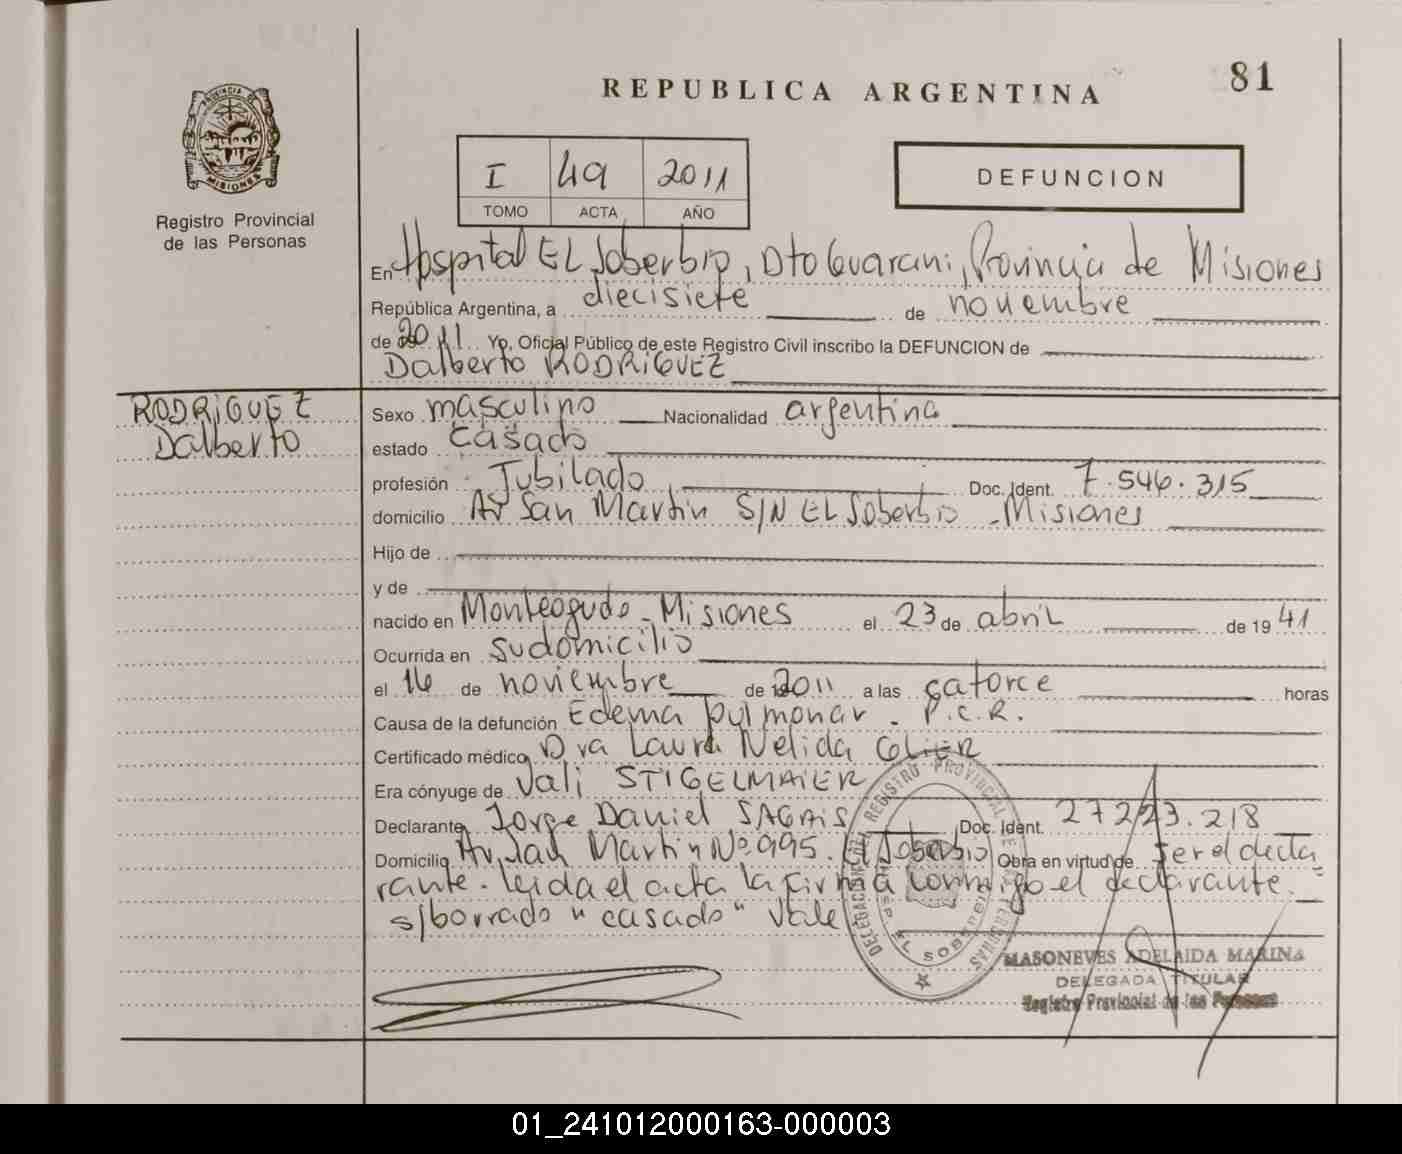 81
REPUBLICA ARGENTINA
PROVINCIA DE
MISIONES
Registro Provincial
de las Personas
I 49 2011
TOMO ACTA AÑO
DEFUNCION
En Hospital EL Soberbio, Dto Guarani, Provincia de Misiones
República Argentina, a diecisiete de noviembre
de 2011 Yo, Oficial Público de este Registro Civil inscribo la DEFUNCION de
Dalberto RODRiGUEZ
RODRiGUEZ
Dalberto
Sexo masculino Nacionalidad argentina
estado casado
profesión Jubilado Doc. Ident. 7.546.315
domicilio Av San Martin S/N EL Soberbio - Misiones
Hijo de
y de
nacido en Monteagudo - Misiones el 23 de abril de 1941
Ocurrida en su domicilio
el 16 de noviembre de 2011 a las catorce horas
Causa de la defunción Edema pulmonar. P.C.R.
Certificado médico Dra Laura Nelida
Era cónyuge de Vali STIGELMAIER
Declarante Jorge Daniel SAGAiS Doc. Ident. 27223.218
Domicilio Av. San Martin Nº 995. El Soberbio Obra en virtud de ser el decla
rante. Leida el acta la firma conmigo el declarante.
s/borrado "casado" Vale
DELEGACION REGISTRO PROVINCIAL DE LAS PERSONAS
EL SOBERBIO
MASONEVES ADELAIDA MARINA
DELEGADA TITULAR
Registro Provincial de las Personas
01_241012000163-000003